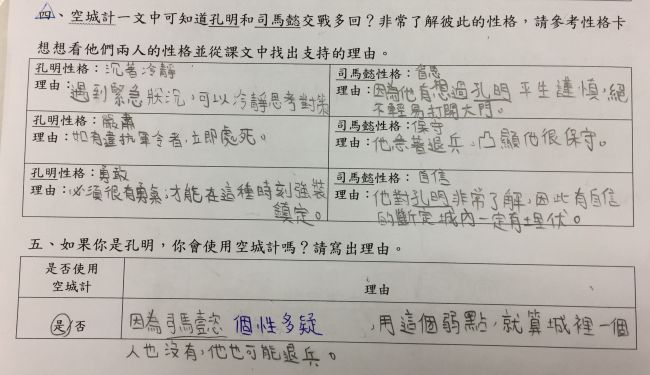 四、空城計一文中可知道孔明和司馬懿交戰多回？非常了解彼此的性格，請參考性格卡
想想看他們兩人的性格並從課文中找出支持的理由。
孔明性格：沉著冷靜
理由：遇到緊急狀況，可以冷靜思考對策
司馬懿性格：省思
理由：因為他有想過孔明平生謹慎，絕
不輕易打開大門。
孔明性格：嚴肅
理由：如有違抗軍令者，立即處死。
司馬懿性格：保守
理由：他急著退兵，凸顯他很保守。
孔明性格：勇敢
理由：必須很有勇氣，才能在這種時刻強裝
鎮定。
司馬懿性格：自信
理由：他對孔明非常了解，因此有自信
的斷定城內一定有埋伏。
五、如果你是孔明，你會使用空城計嗎？請寫出理由。
是否使用
空城計
理由
是/否
因為司馬懿 個性多疑，用這個弱點，就算城裡一個
人也沒有，他也可能退兵。